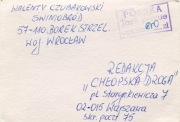 WALENTY CZUBAROWSKI
ŚWINOBRÓD
57-110 BOREK STRZEL.
WOJ WROCŁAW
REDAKCJA
"CHŁOPSKA DROGA"
pl Starynkiewicza 7
02-015 Warszawa
Skr. poczt 75